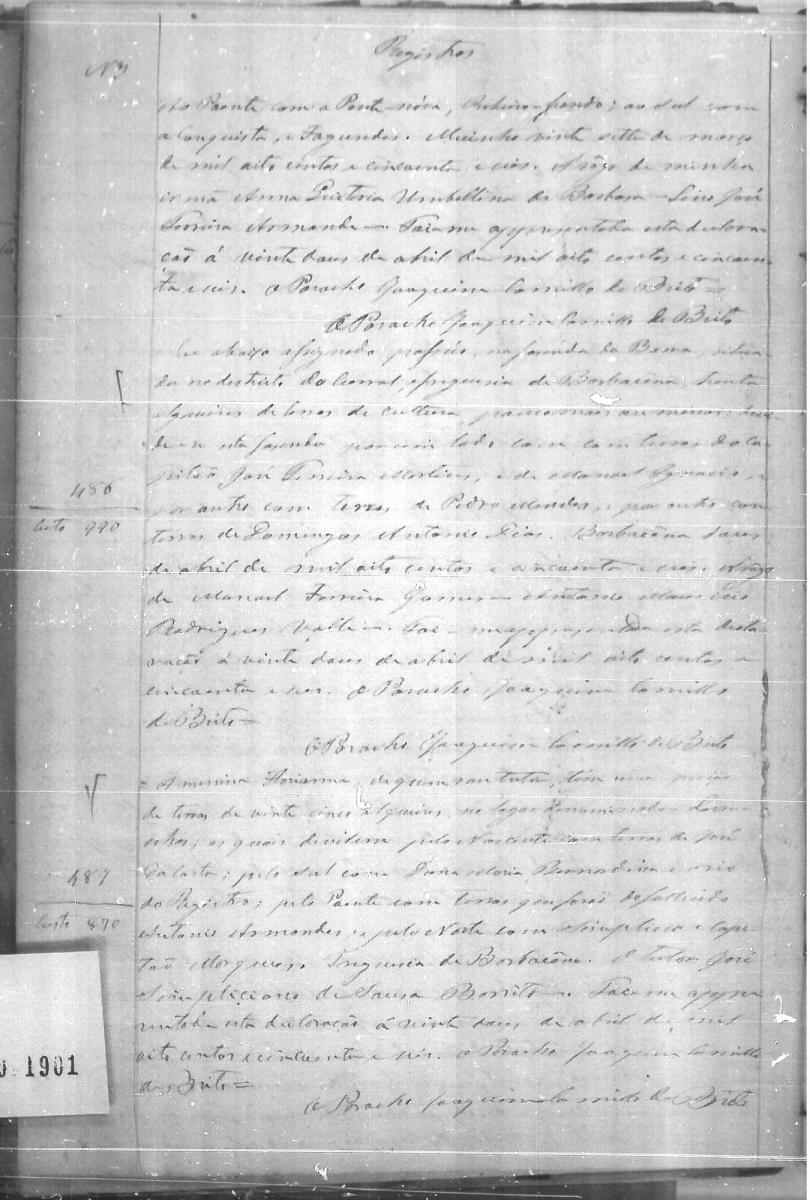 Registros
Nº
ao Poente com a Ponte-nóva, Ribeiro-fundo; ao sul com
a Conquista, e Fagundes. Moinho vinte sette de março
de mil oito centos e cincoenta e seis. A rôgo de minha
irmã Anna Umbellina de Barbosa = Lino José
Ferreira Armonde =. Foi-me appresentada esta declara-
ção á vinte dous de abril de mil oito centos e cincoen-
ta e seis. O Parocho Joaquim Camillo de Brito =
O Parocho Joaquim Camillo de Brito
Eu abaixo assignado na fazenda da situa-
da no destricto do freguesia de Barbacêna trinta
alqueires de terras de cultura, pouco mais ou menos; devi-
de-se esta fazenda por um lado com terras do Ca-
pitão José Ferreira Martins, e de Manoel Ignacio, e
por outro com terras de Pedro Mendes, e por outro com
terras de Domingos Antonio Dias. Barbacêna dous
de abril de mil oito centos e cincoenta e seis. A rôgo
de Manoel Ferreira Gomes = Antonio Mauricio
Rodrigues Valle =. Foi-me appresentada esta decla-
ração á vinte dous de abril de mil oito centos e
cincoenta e seis. O Parocho Joaquim Camillo
de Brito =
O Parocho Joaquim Camillo de Brito
486
Custo 990
= A menina Florianna, de quem sou tutor, tem uma
de terras de vinte cinco alqueires, no lugar denominado
os quais devidem pelo Nascente com terras de José
da Costa; pelo sul com Dona Maria Bernardina e
do Registro; pelo Poente com terras que forão do fallecido
Antonio Armondes, e pelo Norte com Simplicio e Capi-
tão Marques. Freguesia de Barbacêna. O tutor José
Simpliciano de Sousa Barrito =. Foi-me appre-
sentada esta declaração á vinte dous de abril de mil
oito centos e cincoenta e seis. O Parocho Joaquim Camillo
de Brito =
O Parocho Joaquim Camillo de Brito
487
Custo 870
1901